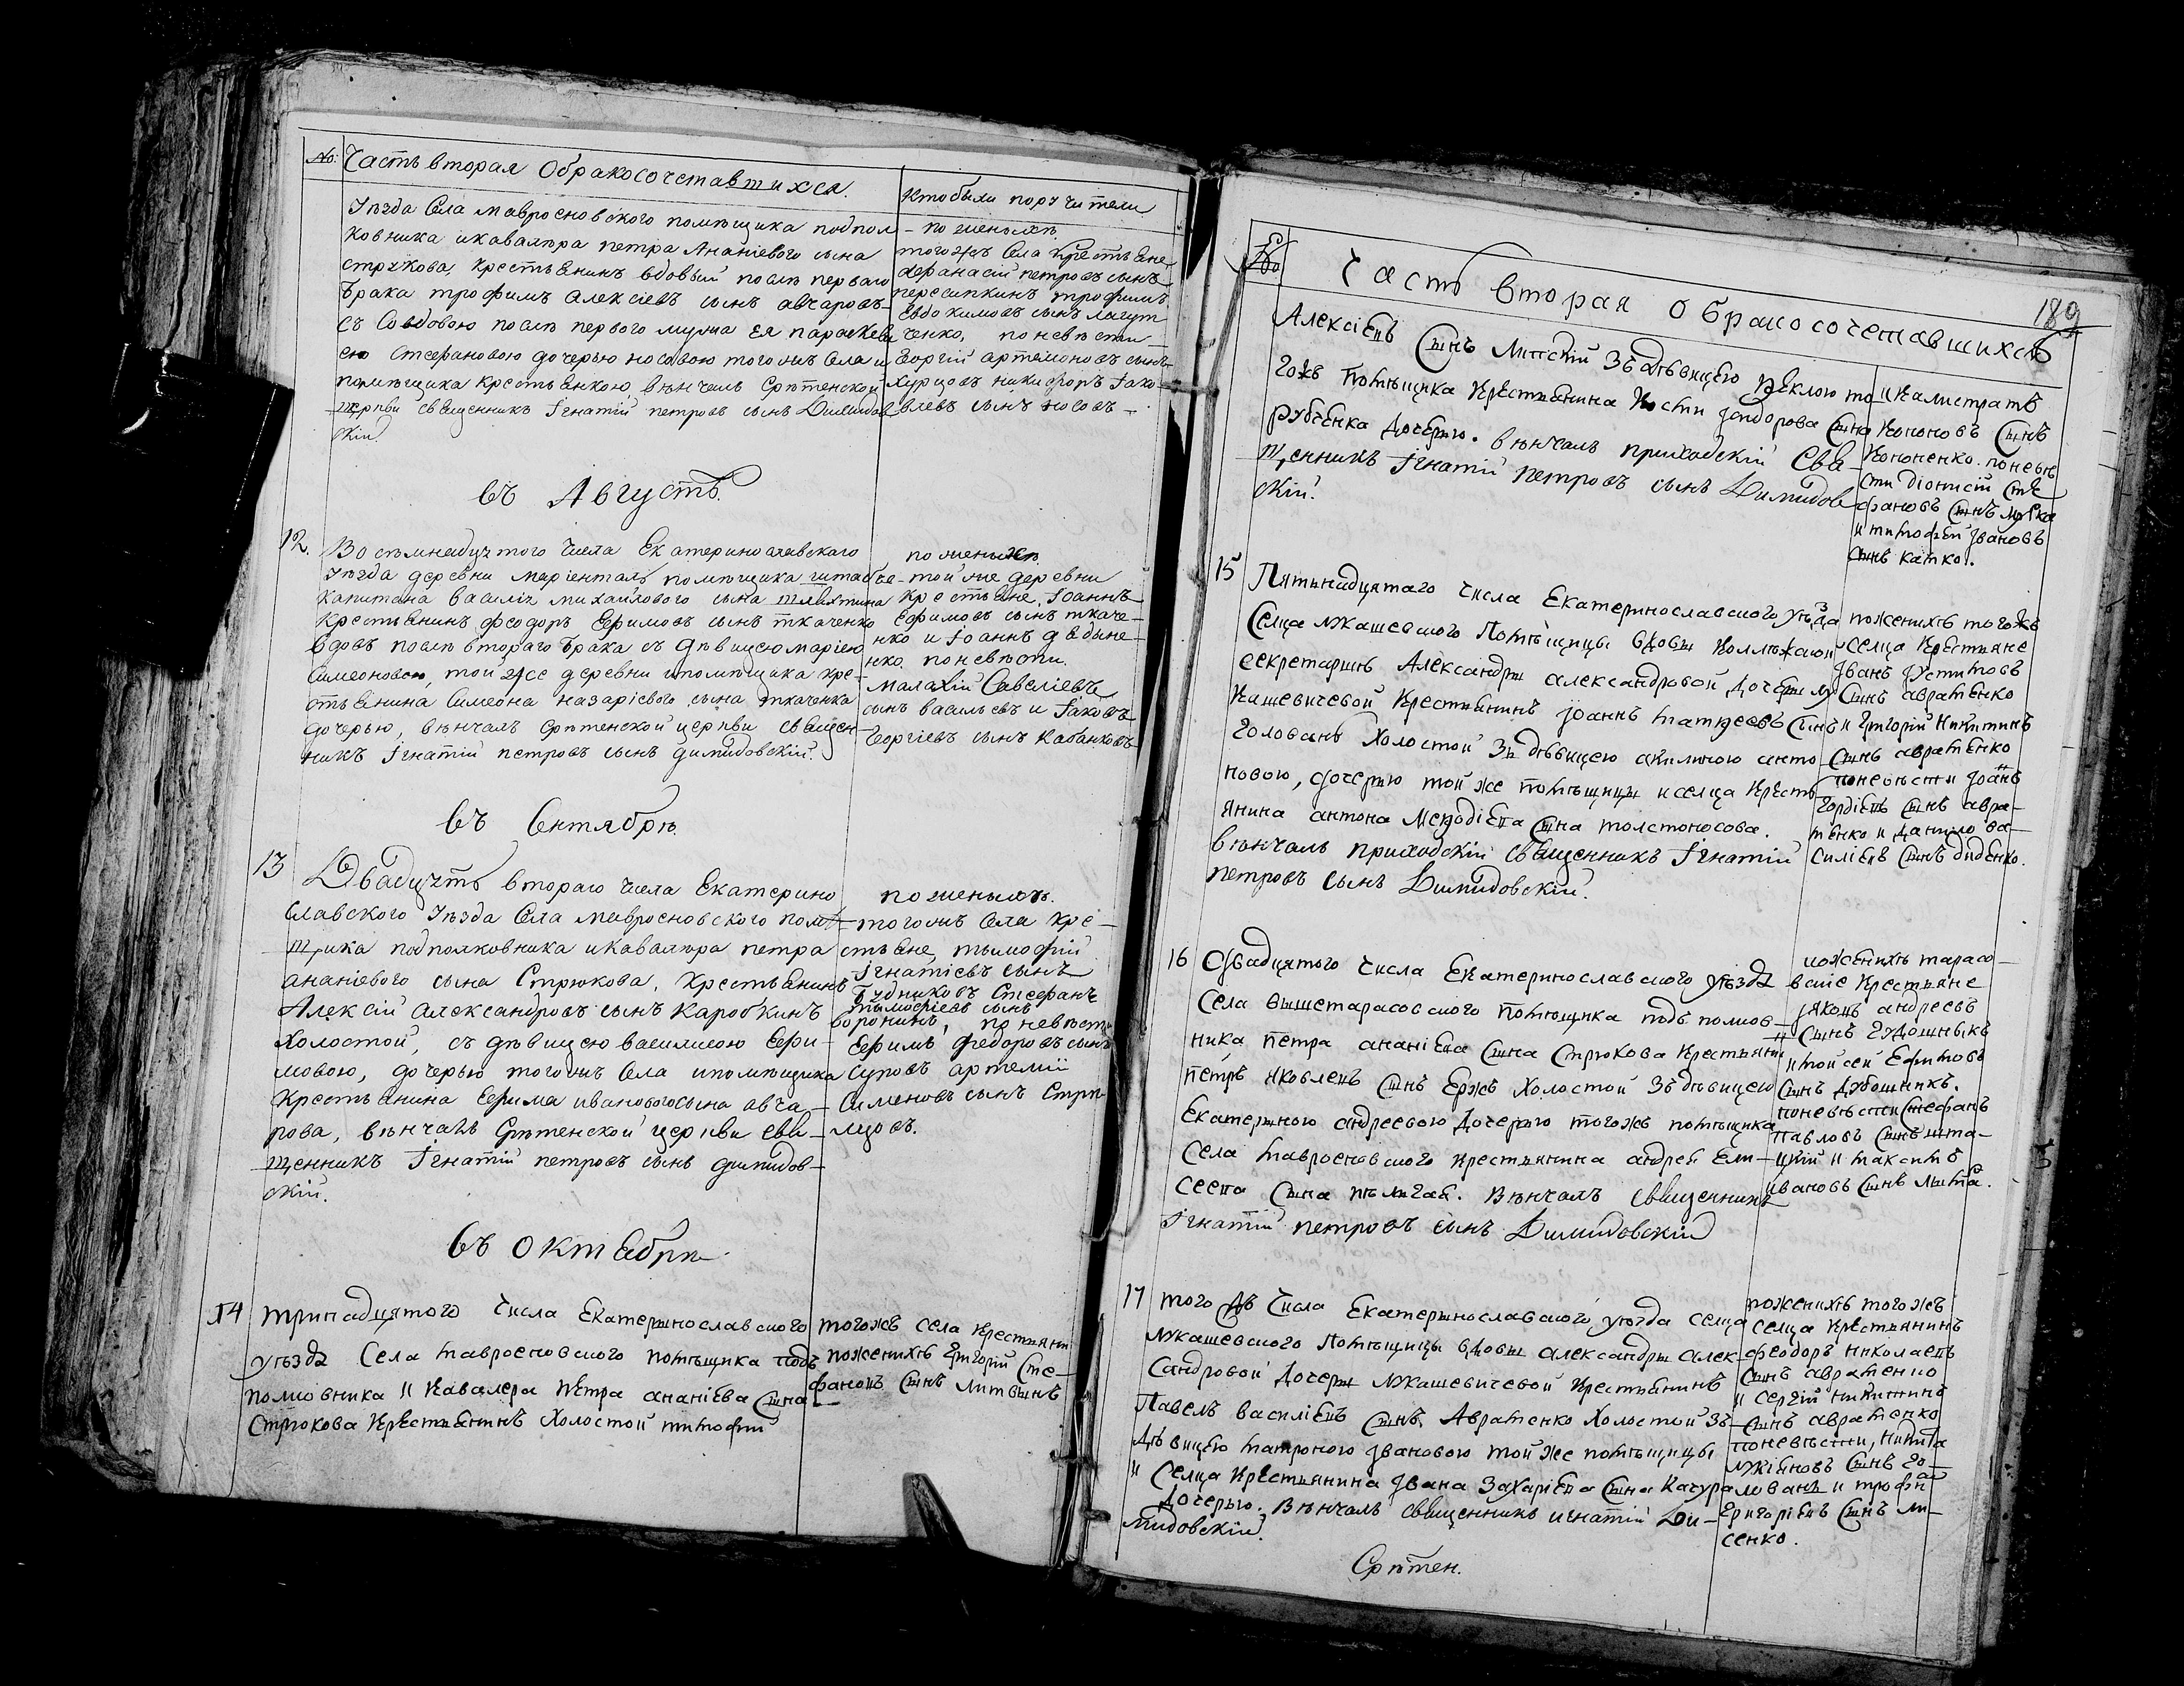 No: Часть вторая Обракосочетавшихся.
Кто были поручители
Уѣзда Села мавроеновского помѣщика подпол
ковника икавалѣра петра Ананіевого сына
стрюкова, крестьянинъ вдовый послѣ перваго
брака трофимъ Алексіевъ сынъ авчаровъ
съ Совдовою послѣ первого мужа ея параскеви
ею Стефановою дочерью носовою того жъ Села и
помѣщика крестьянкою, вѣнчалъ Срѣтенской
церкви священникъ Ігнатій петровъ сынъ Димидов
скій.
по женихѣ
того жъ Села крестьяне,
афанасій петровъ сынъ
пересипкинъ трофимъ
Евдокимовъ сынъ лагут
ченко, по невѣсти
Георгій артамоновъ сынъ
хурцовъ никифоръ Іако-
влевъ сынъ носовъ -
въ Августѣ.
12. Восѣмнадцетого Числа Екатеринославского
Уѣзда деревни маріенталъ помѣщика штабсъ
капитана василія михайлового сына
крестьянинъ феодоръ Ефимовъ сынъ ткаченко
вдовъ послѣ втораго брака съ дѣвицею маріею
Симеоновою, той же деревни ипомѣщика кре-
стьянина Симеона назаріевого сына ткаченка
дочерью, вѣнчалъ Срѣтенской церкви священ-
никъ Ігнатій петровъ сынъ димидовскій.
по женихѣ
той же деревни
крестьяне, Іоаннъ
Ефимовъ сынъ ткаче-
нко и Іоаннъ
нко, по невѣсти.
малахій Савеліевъ
сынъ васильевъ и Іаковъ
Георгіевъ сынъ кабанковъ
въ Сентябрѣ.
13 Двадцеть втораго Числа Екатерино
славского Уѣзда Села мавроеновского помѣ-
щика подполковника икавалѣра петра
ананіевого сына Стрюкова, крестьянинъ
Алексій Александровъ сынъ каробкинъ
Холостой, съ дѣвицею василисою Ефи-
мовою, дочерью того жъ Села ипомѣщика
крестьянина Ефима ивановогосына авча-
рова, вѣнчалъ Срѣтенской церкви свя-
щенникъ Ігнатій петровъ сынъ димидов-
скій.
по женихѣ.
того жъ Села кре-
стьяне, тымофій
Ігнатіевъ сынъ
Будниковъ Стефанъ
тымофіевъ сынъ
воронинъ, по невѣсти
Ефимъ федоровъ сынъ
Суповъ артемій
Сименовъ сынъ Стрѣ
лцовъ.
въ октябрѣ
14 тринадцятого числа Екатеринославского
уѣзда Села мавроеновского помѣщика подъ
полковника и Кавалера Петра ананіева Сына
Стрюкова Крестьянинъ Холостой тимофій
тогожъ села Крестьяни
поженихѣ григорій Сте-
фановъ Сынъ литвинъ
№ Часть вторая обракосочетавшихся
189
Алексіевъ Сынъ Липскій Зъ дѣвицею Ѳеклою то
гожъ Помѣщика Крестьянина Кости Ѳодорова Сына
рубченка Дочерью. Вѣнчалъ приходскій Свя-
щенникъ Ігнатій Петровъ сынъ Димидов
скій.
и Калистратъ
Кононовъ Сынъ
Кононенко. поневѣ
сти діонисій Сте
фановъ Сынъ
и тимофѣй Івановъ
Сынъ катко.
15 Пятьнадцятаго числа Екатеринославского уѣзда
Селца лукашевского Помѣщицы вдовы Коллѣжской
секретаршѣ Александры александровой Дочеры лу
кашевичевой Крестьянинъ Іоаннъ матвеевъ Сынъ
Головань Холостой Зъ дѣвицею акилиною анто
новою, дочерью той же помѣщицы и селца Кресть
янина антона Меѳодіева Сына толстоносова.
вѣнчалъ приходскій священникъ Ігнатій
петровъ сынъ Димидовскій.
поженихѣ тогожъ
селца Крестьяне
Іванъ Устимовъ
Сынъ авраменко
и Григорій Никитинъ
Сынъ авраменко
поневѣсти Іоанъ
Гордіевъ Сынъ авра-
менко и данило ва-
силіевъ Сынъ диденко.
16 Двадцятого числа Екатеринославского уѣзда
Села вышетарасовского помѣщика подъ полков-
ника петра ананіева Сына Стрюкова Крестьяни
петръ Яковлевъ Сынъ Ержъ Холостой Зъ дѣвицею
Екатериною андреевою Дочерью тогожъ помѣщика
Села мавроеновского крестьянина андрея Ели-
сеева Сына. Вѣнчалъ Священникъ
Ігнатій петровъ сынъ Димидовскій
поженихѣ тарасо-
вские Крестьяне
Яковъ андреевъ
Сынъ
и мойсей Ефимовъ
Сынъ
поневѣсти Стефанъ
павловъ Сынъ
и максимъ
ивановъ Сынъ
17 того жъ Числа Екатеринославского уѣзда селца
лукашевского Помѣщицы вдовы александры алек-
сандровой Дочеры лукашевичевой Крестьянинъ
Павелъ василіевъ Сынъ, Авраменко Холостой Зъ
дѣвицею матроною Івановою той же помѣщицы
и Селца Крестьянина Івана Захаріева Сына Качура
дочерью. Вѣнчалъ священникъ игнатій Ди-
мидовскій.
поженихѣ тогожъ
селца Крестьянинъ
феодоръ николаевъ
Сынъ авраменко
и сергій никитинъ
Сынъ авраменко
поневѣсти, никита
лукіановъ Сынъ го-
лованъ и трофи
григоріевъ Сынъ ли-
сенко.
Срѣтен.